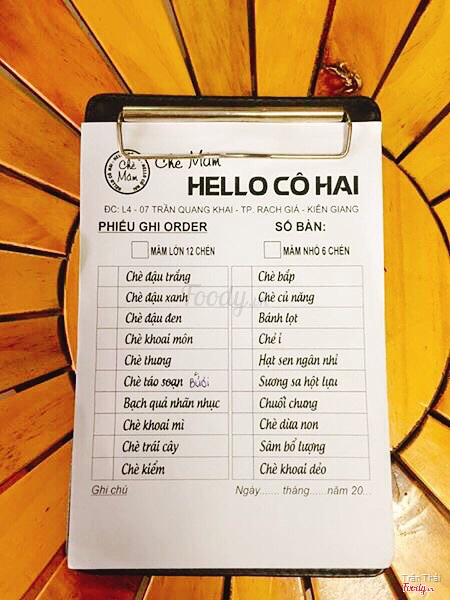 Chè Mâm
HELLO CÔ HAI
Chè Mâm
HELLO CÔ HAI
ĐC: L4 - 07 TRẦN QUANG KHẢI - TP. RẠCH GIÁ - KIÊN GIANG
PHIẾU GHI ORDER SỐ BÀN:
MÂM LỚN 12 CHÉN MÂM NHỎ 6 CHÉN
Chè đậu trắng Chè bắp
Chè đậu xanh Chè củ năng
Chè đậu đen Bánh lọt
Chè khoai môn Chè ỉ
Chè thưng Hạt sen ngân nhỉ
Chè táo soạn BƯỞI Sương sa hột lựu
Bạch quả nhãn nhục Chuối chưng
Chè khoai mì Chè dừa non
Chè trái cây Sâm bổ lượng
Chè kiểm Chè khoai dẻo
Ghi chú Ngày....... tháng......năm 20...
Foody.vn
Trần Thái
Foody.vn